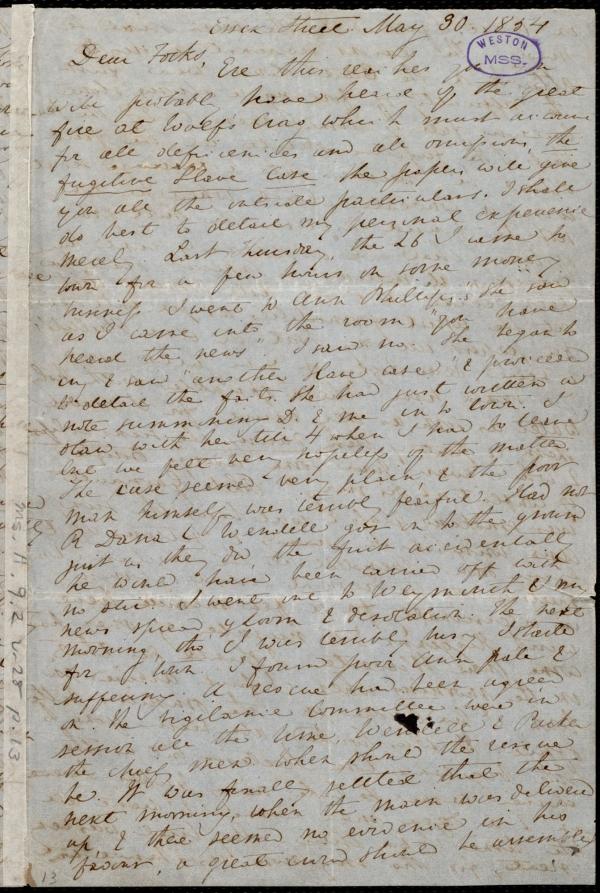 Essex Street May 30. 1854
WESTON
MSS.
Dear Folks, Ere this reaches you
will probably have heard of the great
fire at Wolf's Crag which must account
for all deficiencies and all omissions, the
fugitive Slave Case. The papers will give
you all the outside particulars. I shall
do best to detail my personal experience
merely. Last Thursday, the 26 I came to
town for a few hours on some money
business. I went to Ann Phillips. She said
as I came into the room "you have
heard the news". I said no. She began to
cry & said "another slave case" & proceeded
to detail the facts. She had just written a
note summoning D. & me in to town. I
staid with her till 4 when I had to leave
but we felt very hopeless of the matter.
The case seemed very plain, & the poor
man himself was terribly fearful. Had not
R Dana & Wendell got on to the ground
just as they did the first accidentally
he would have been carried off with
no stir. I went out to Weymouth & my
news spread gloom & desolation. The next
morning tho I was terribly busy I started
for town. I found poor Ann pale &
suffering. A rescue had been agreed
on. The vigilance Committee were in
session all the time, Wendell & Parker
the chief men. When should the rescue
be. It was finally settled that the
next morning, when the man was delivered
up, & there seemed no evidence in his
favour, a great crowd should be assembled
Ms. A. 9.2 v.28 p.13
13